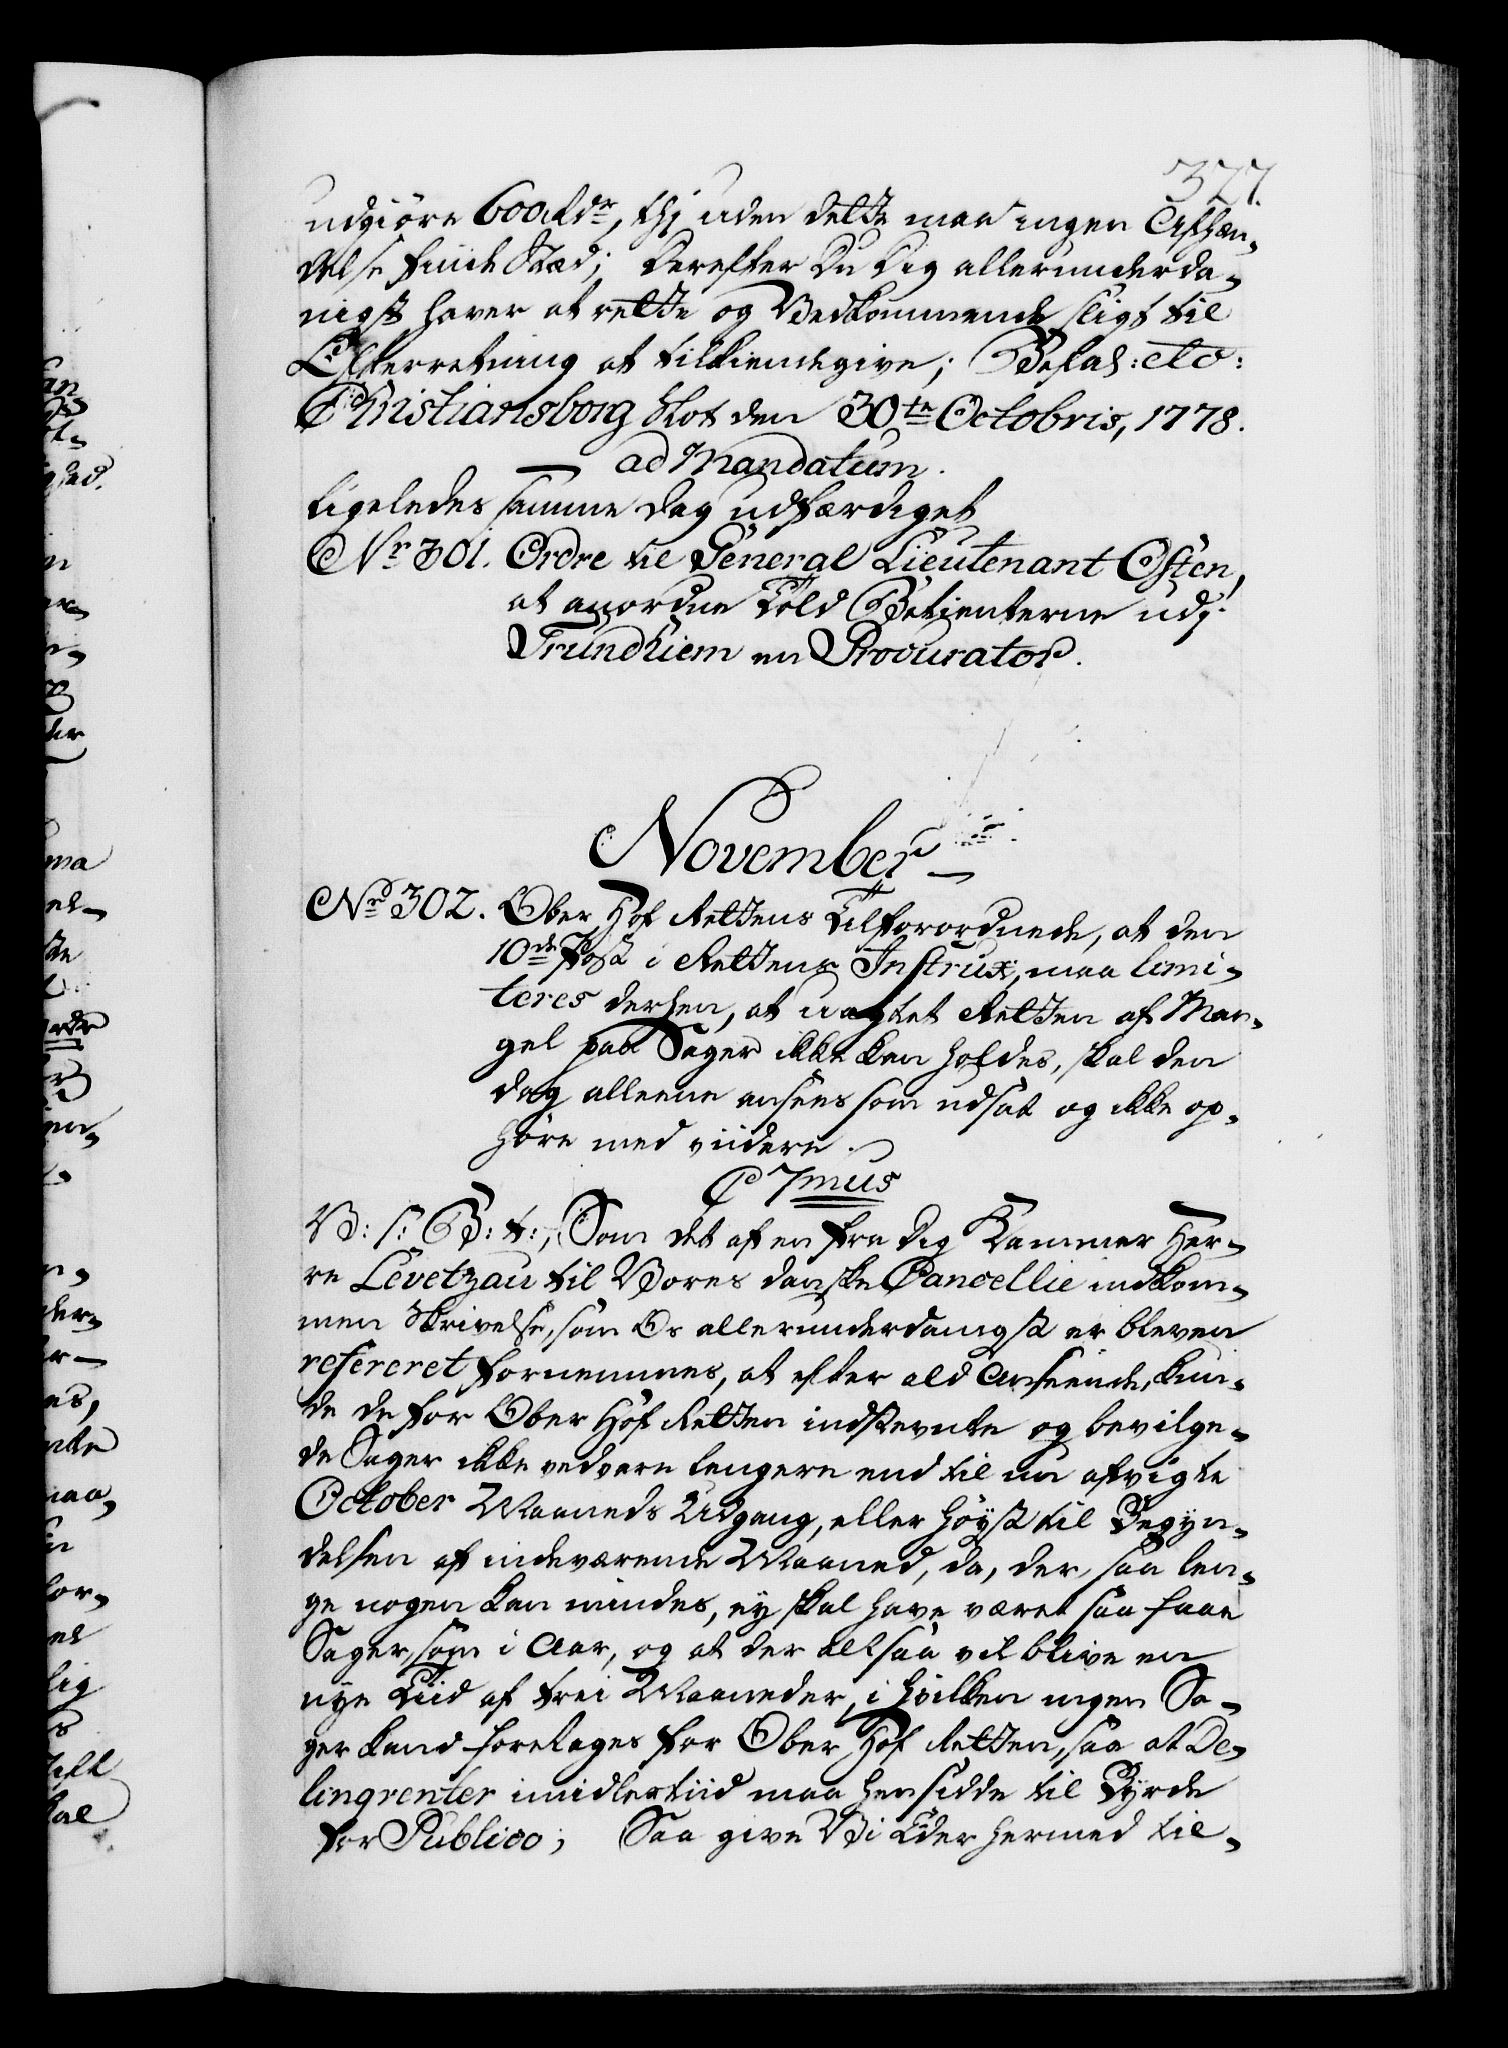 377.
udgiöre 600 Rdr, thj uden dette maa ingen Afhæn-
delse finde Stæd; Derefter Du Dig allerunderda-
nigst haver at rette og Vedkommende sligt til
Efterretning at tilkiendegive; Befal: etc:
Christiansborg Slot den 30te Octobris, 1778.
ad Mandatum.
Ligeledes samme Dag udfærdiget
Nr 301. Ordre til General Lieutenant Osten,
at anordne Told Betienterne udj
Trundhiem en Procurator.
November
Nr 302. Ober Hof Rettens Tilforordnede, at den
10de Post i Rettens Instrux, maa limi-
teres derhen, at uagtet Retten af Man-
gel paa Sager ikke kan holdes, skal den
dog alleene ansees som udsat og ikke op-
höre med viidere.
C 7mus
V: s: G: t:, Som det af en fra Dig Kammer Her-
re Levetzau til Vores danske Cancellie indkom-
men Skrivelse, som Os allerunderdanigst er bleven
refereret fornemmes, at efter ald Anseende, kun-
de de for Ober Hof Retten indstevnte og bevilge-
de Sager ikke vedvare lengere end til nu afvigte
October Maaneds Udgang, eller höyst til Begyn-
delsen af indeværende Maaned, da, der, saa len-
ge nogen kan mindes, ey skal have været saa faae
Sager, som i Aar, og at der altsaa vil blive en
nye Tiid af trei Maaneder, i hvilken ingen Sa-
ger kand foretages for Ober Hof Retten, saa at De-
linqventer imidlertiid maa hensidde til Byrde
for Publico; Saa give Vi Eder hermed til-